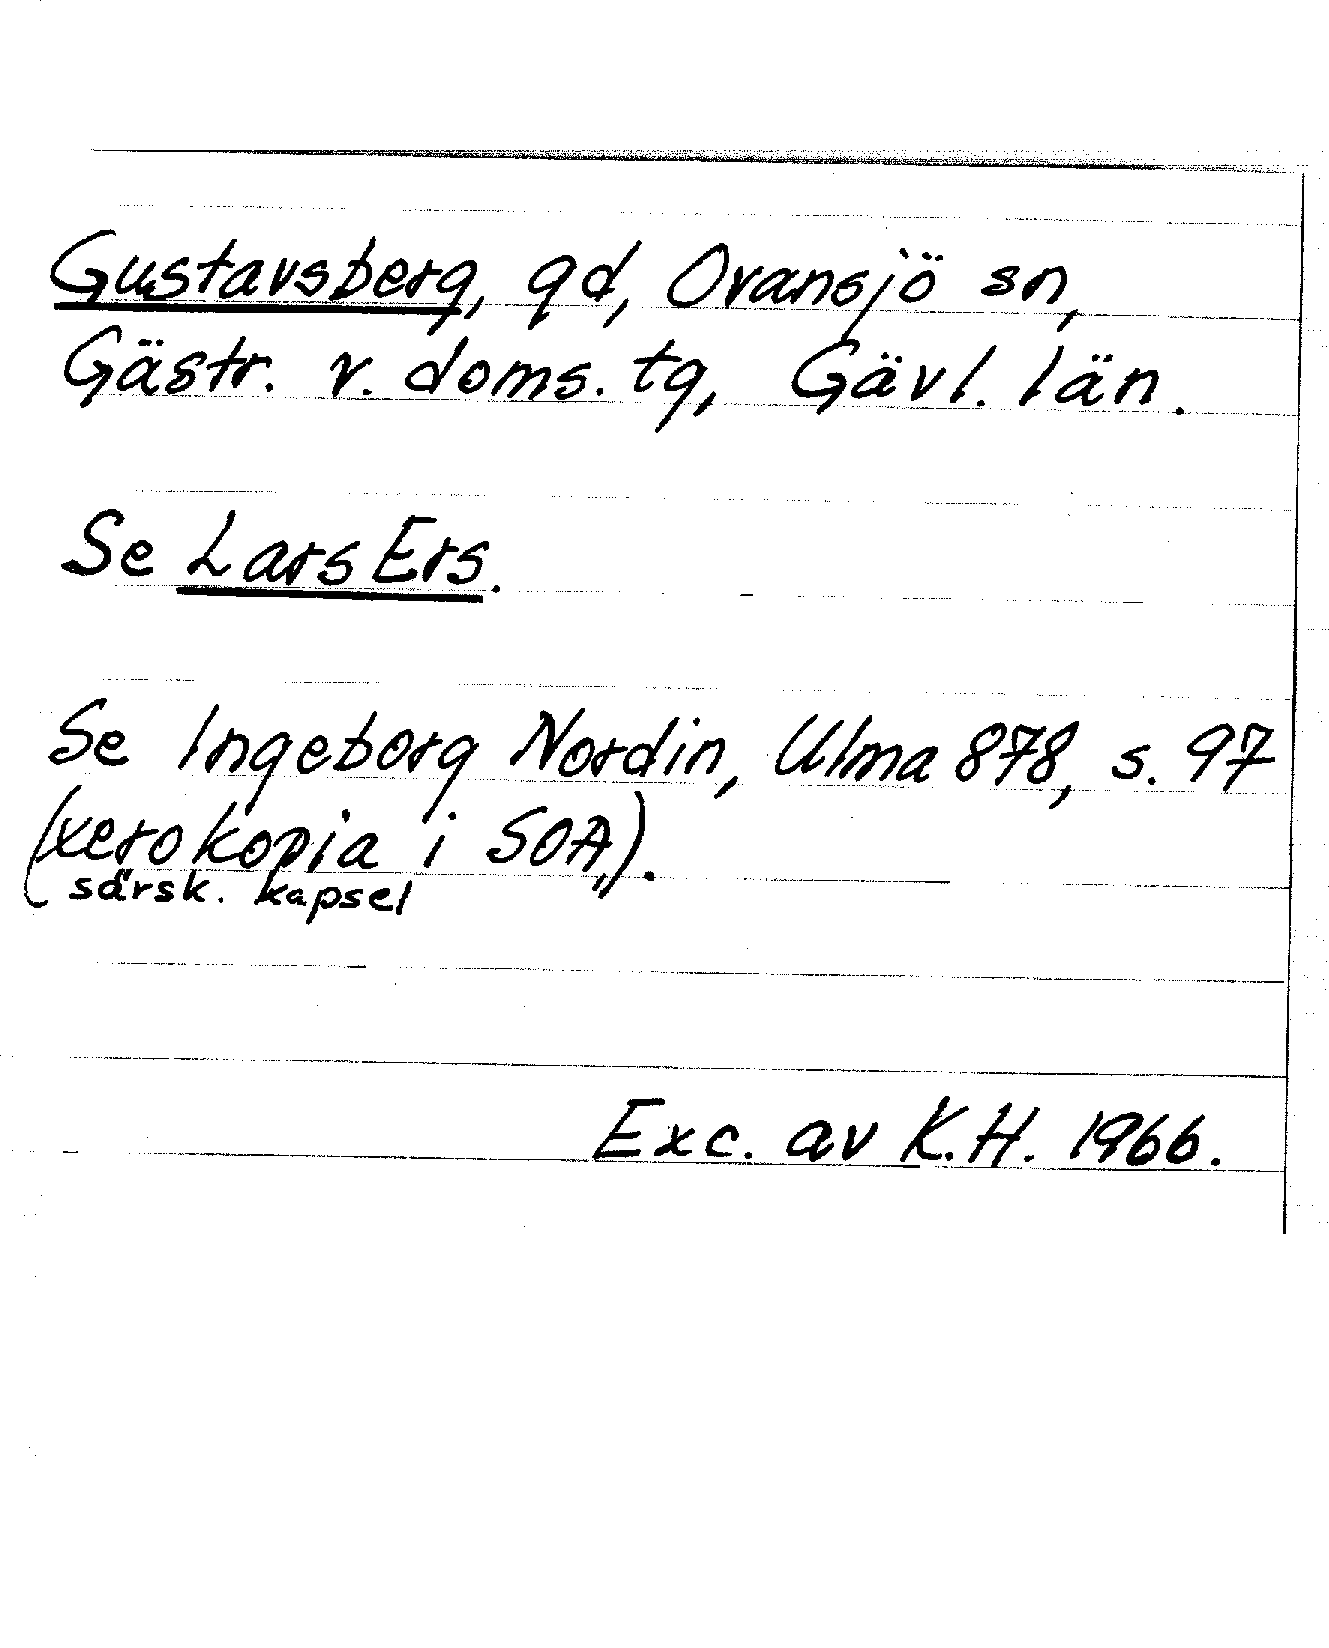 Gustavsberg, gd, Ovansjö sn,
Gästr. v. doms. tg, Gävl. län.
Se Lars Ers.
Se Ingeborg Nordin, Ulma 878, s. 97
(xerokopia i SOA,).
särsk. kapsel
Exc. av K.H. 1966.